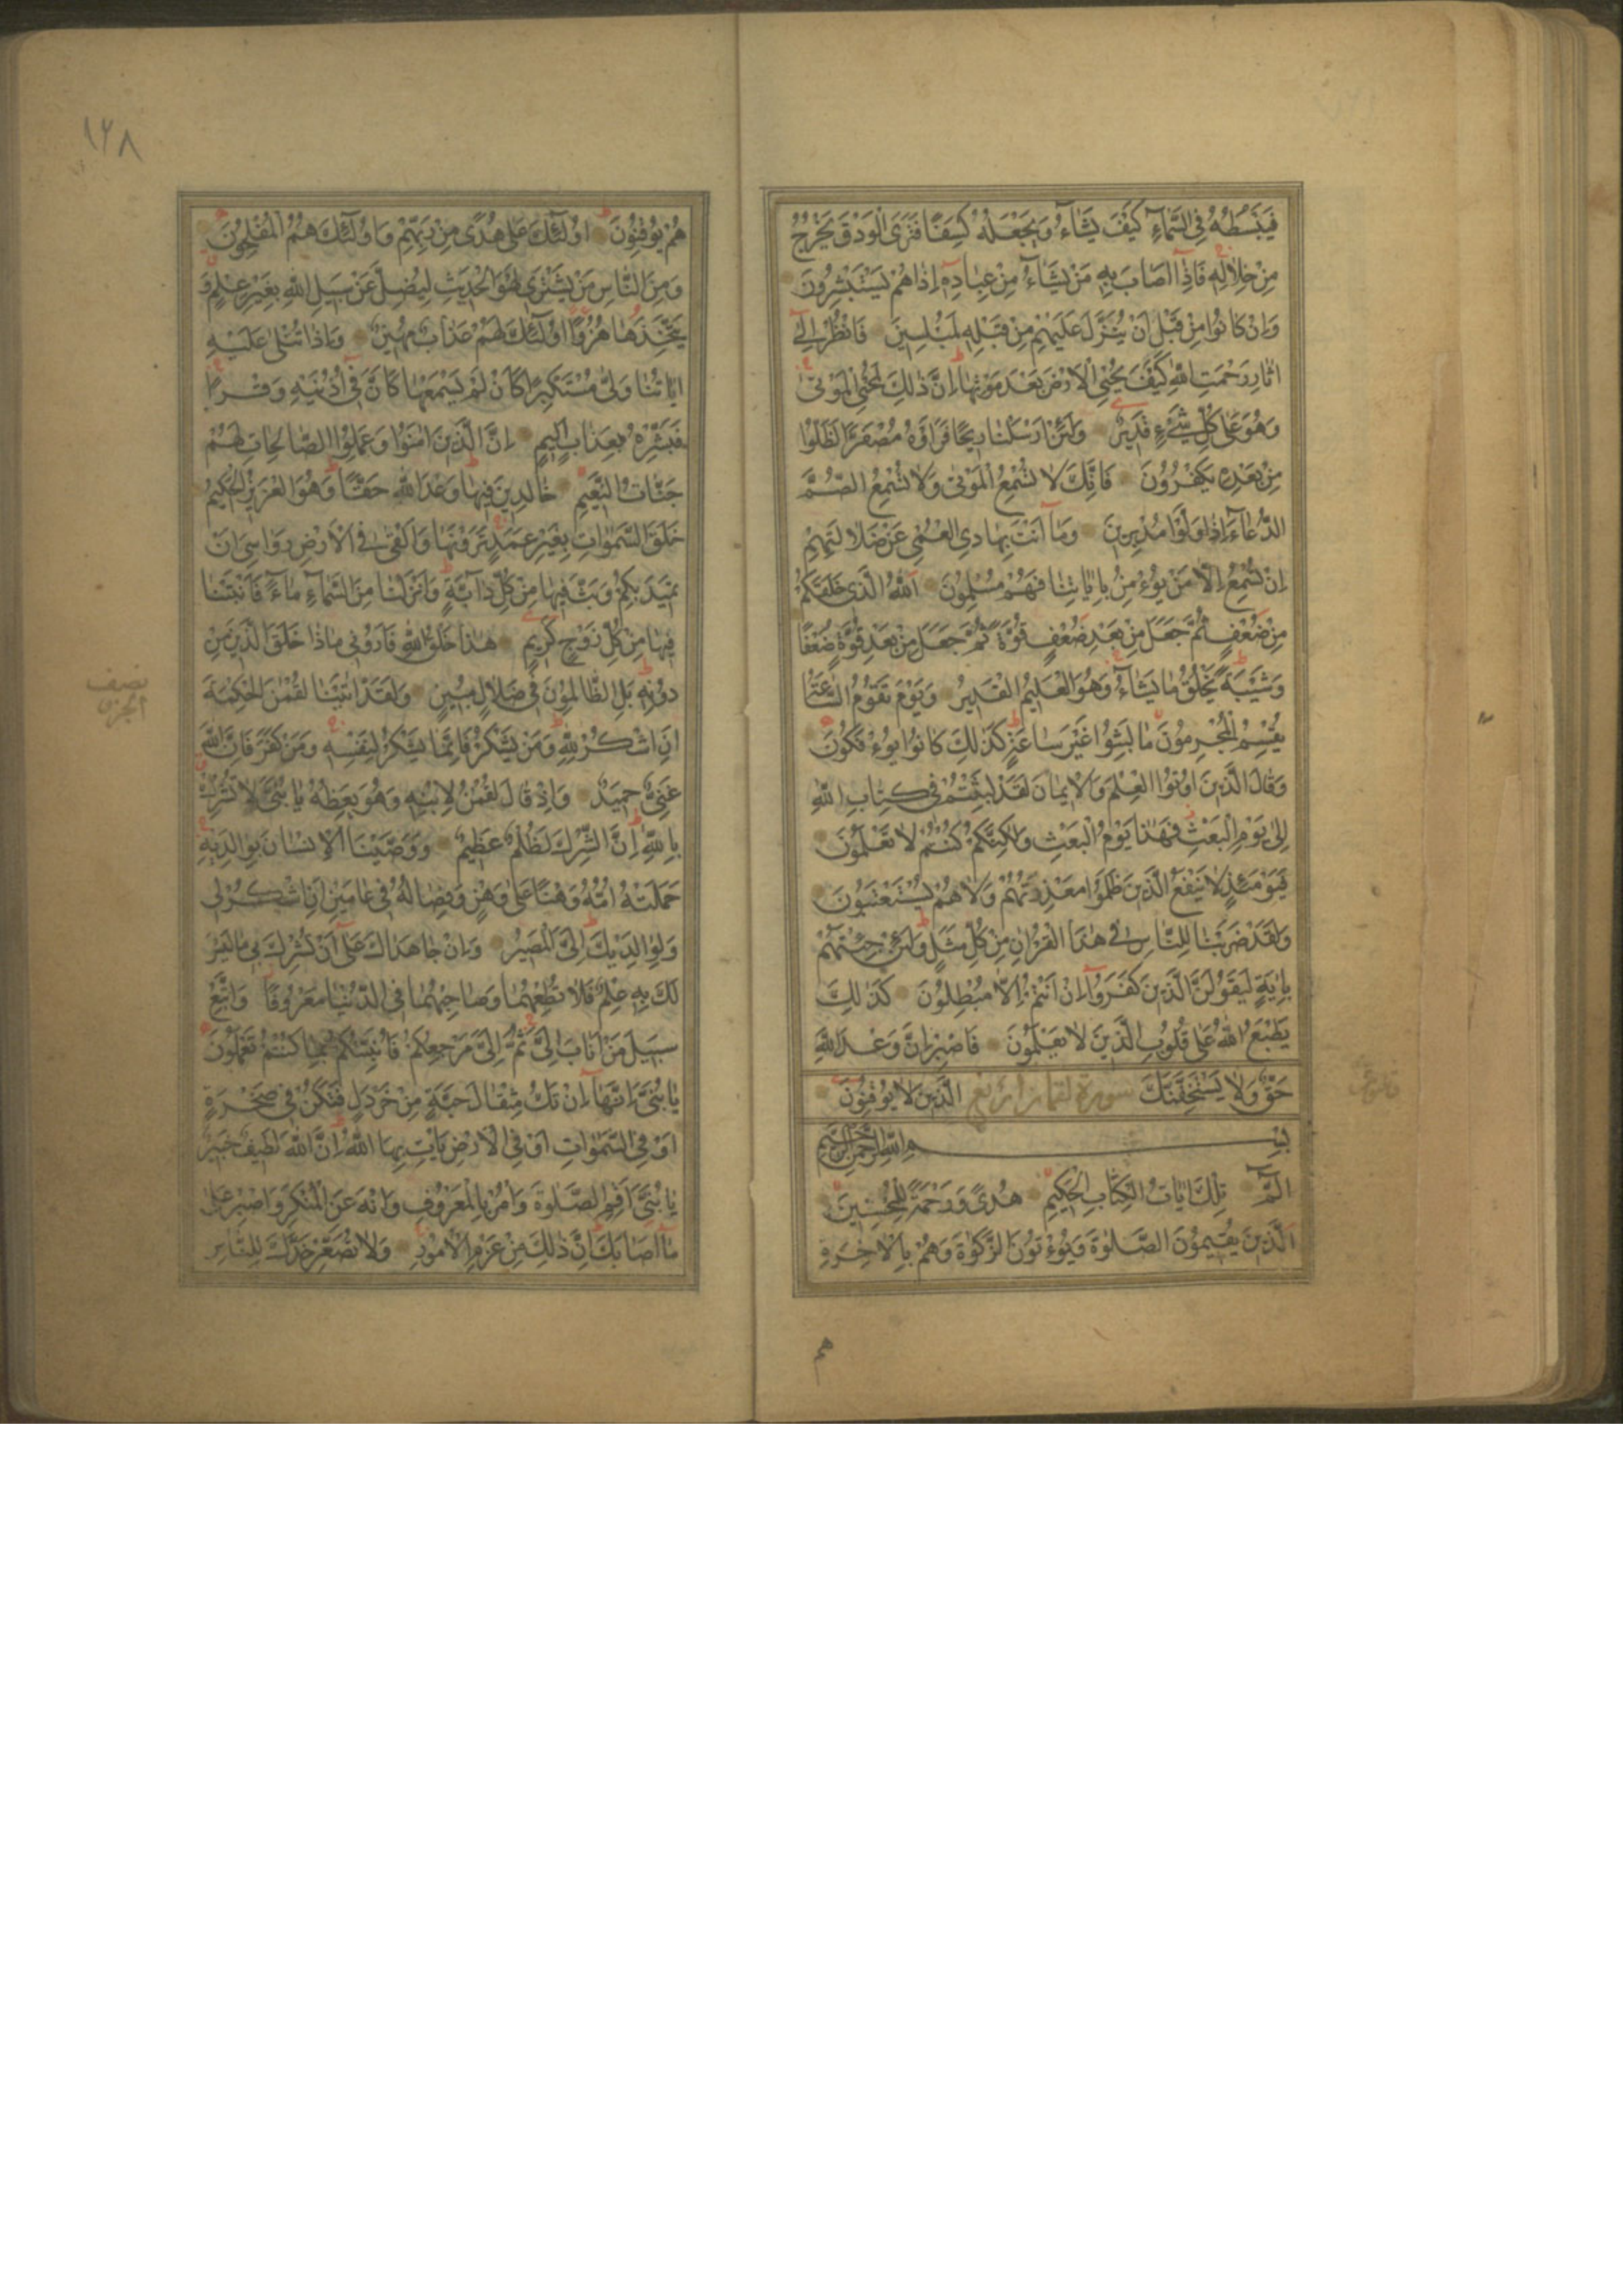 فَيَبْسُطُهُ فِي السَّمَآءِ كَيْفَ يَشَآءُ وَيَجْعَلُهُ كِسَفًا فَتَرَى الْوَدْقَ يَخْرُجُ
مِنْ خِلَالِهِ فَاِذَآ اَصَابَ بِهِ مَنْ يَشَآءُ مِنْ عِبَادِهِ اِذَا هُمْ يَسْتَبْشِرُونَ
وَاِنْ كَانُوا مِنْ قَبْلِ اَنْ يُنَزَّلَ عَلَيْهِمْ مِنْ قَبْلِهِ لَمُبْلِسِينَ فَانْظُرْ اِلٰى
اٰثَارِ رَحْمَتِ اللّٰهِ كَيْفَ يُحْيِي الْاَرْضَ بَعْدَ مَوْتِهَا اِنَّ ذٰلِكَ لَمُحْيِي الْمَوْتٰى
وَهُوَ عَلٰى كُلِّ شَيْءٍ قَدِيرٌ وَلَئِنْ اَرْسَلْنَا رِيحًا فَرَاَوْهُ مُصْفَرًّا لَظَلُّوا
مِنْ بَعْدِهِ يَكْفُرُونَ فَاِنَّكَ لَا تُسْمِعُ الْمَوْتٰى وَلَا تُسْمِعُ الصُّمَّ
الدُّعَآءَ اِذَا وَلَّوْا مُدْبِرِينَ وَمَآ اَنْتَ بِهَادِي الْعُمْيِ عَنْ ضَلَالَتِهِمْ
اِنْ تُسْمِعُ اِلَّا مَنْ يُؤْمِنُ بِاٰيَاتِنَا فَهُمْ مُسْلِمُونَ اَللّٰهُ الَّذِي خَلَقَكُمْ
مِنْ ضُعْفٍ ثُمَّ جَعَلَ مِنْ بَعْدِ ضُعْفٍ قُوَّةً ثُمَّ جَعَلَ مِنْ بَعْدِ قُوَّةٍ ضُعْفًا
وَشَيْبَةً يَخْلُقُ مَا يَشَآءُ وَهُوَ الْعَلِيمُ الْقَدِيرُ وَيَوْمَ تَقُومُ السَّاعَةُ
يُقْسِمُ الْمُجْرِمُونَ مَا لَبِثُوا غَيْرَ سَاعَةٍ كَذٰلِكَ كَانُوا يُؤْفَكُونَ
وَقَالَ الَّذِينَ اُوتُوا الْعِلْمَ وَالْاِيمَانَ لَقَدْ لَبِثْتُمْ فِي كِتَابِ اللّٰهِ
اِلٰى يَوْمِ الْبَعْثِ فَهٰذَا يَوْمُ الْبَعْثِ وَلٰكِنَّكُمْ كُنْتُمْ لَا تَعْلَمُونَ
فَيَوْمَئِذٍ لَا يَنْفَعُ الَّذِينَ ظَلَمُوا مَعْذِرَتُهُمْ وَلَا هُمْ يُسْتَعْتَبُونَ
وَلَقَدْ ضَرَبْنَا لِلنَّاسِ فِي هٰذَا الْقُرْاٰنِ مِنْ كُلِّ مَثَلٍ وَلَئِنْ جِئْتَهُمْ
بِاٰيَةٍ لَيَقُولَنَّ الَّذِينَ كَفَرُوآ اِنْ اَنْتُمْ اِلَّا مُبْطِلُونَ كَذٰلِكَ
يَطْبَعُ اللّٰهُ عَلٰى قُلُوبِ الَّذِينَ لَا يَعْلَمُونَ فَاصْبِرْ اِنَّ وَعْدَ اللّٰهِ
حَقٌّ وَلَا يَسْتَخِفَّنَّكَ سورة لقمان اربع الَّذِينَ لَا يُوقِنُونَ
بِسْمِ اللّٰهِ الرَّحْمٰنِ الرَّحِيمِ
الٓمٓ تِلْكَ اٰيَاتُ الْكِتَابِ الْحَكِيمِ هُدًى وَرَحْمَةً لِلْمُحْسِنِينَ
اَلَّذِينَ يُقِيمُونَ الصَّلٰوةَ وَيُؤْتُونَ الزَّكٰوةَ وَهُمْ بِالْاٰخِرَةِ
هم
١٢٨
هُمْ يُوقِنُونَ اُولٰٓئِكَ عَلٰى هُدًى مِنْ رَبِّهِمْ وَاُولٰٓئِكَ هُمُ الْمُفْلِحُونَ
وَمِنَ النَّاسِ مَنْ يَشْتَرِي لَهْوَ الْحَدِيثِ لِيُضِلَّ عَنْ سَبِيلِ اللّٰهِ بِغَيْرِ عِلْمٍ وَ
يَتَّخِذَهَا هُزُوًا اُولٰٓئِكَ لَهُمْ عَذَابٌ مُهِينٌ وَاِذَا تُتْلٰى عَلَيْهِ
اٰيَاتُنَا وَلّٰى مُسْتَكْبِرًا كَاَنْ لَمْ يَسْمَعْهَا كَاَنَّ فِي اُذُنَيْهِ وَقْرًا
فَبَشِّرْهُ بِعَذَابٍ اَلِيمٍ اِنَّ الَّذِينَ اٰمَنُوا وَعَمِلُوا الصَّالِحَاتِ لَهُمْ
جَنَّاتُ النَّعِيمِ خَالِدِينَ فِيهَا وَعْدَ اللّٰهِ حَقًّا وَهُوَ الْعَزِيزُ الْحَكِيمُ
خَلَقَ السَّمٰوَاتِ بِغَيْرِ عَمَدٍ تَرَوْنَهَا وَاَلْقٰى فِي الْاَرْضِ رَوَاسِيَ اَنْ
تَمِيدَ بِكُمْ وَبَثَّ فِيهَا مِنْ كُلِّ دَآبَّةٍ وَاَنْزَلْنَا مِنَ السَّمَآءِ مَآءً فَاَنْبَتْنَا
فِيهَا مِنْ كُلِّ زَوْجٍ كَرِيمٍ هٰذَا خَلْقُ اللّٰهِ فَاَرُونِي مَاذَا خَلَقَ الَّذِينَ مِنْ
دُونِهِ بَلِ الظَّالِمُونَ فِي ضَلَالٍ مُبِينٍ وَلَقَدْ اٰتَيْنَا لُقْمٰنَ الْحِكْمَةَ
نصف الجزء
اَنِ اشْكُرْ لِلّٰهِ وَمَنْ يَشْكُرْ فَاِنَّمَا يَشْكُرُ لِنَفْسِهِ وَمَنْ كَفَرَ فَاِنَّ اللّٰهَ
غَنِيٌّ حَمِيدٌ وَاِذْ قَالَ لُقْمٰنُ لِابْنِهِ وَهُوَ يَعِظُهُ يَا بُنَيَّ لَا تُشْرِكْ
بِاللّٰهِ اِنَّ الشِّرْكَ لَظُلْمٌ عَظِيمٌ وَوَصَّيْنَا الْاِنْسَانَ بِوَالِدَيْهِ
حَمَلَتْهُ اُمُّهُ وَهْنًا عَلٰى وَهْنٍ وَفِصَالُهُ فِي عَامَيْنِ اَنِ اشْكُرْ لِي
وَلِوَالِدَيْكَ اِلَيَّ الْمَصِيرُ وَاِنْ جَاهَدَاكَ عَلٰٓى اَنْ تُشْرِكَ بِي مَا لَيْسَ
لَكَ بِهِ عِلْمٌ فَلَا تُطِعْهُمَا وَصَاحِبْهُمَا فِي الدُّنْيَا مَعْرُوفًا وَاتَّبِعْ
سَبِيلَ مَنْ اَنَابَ اِلَيَّ ثُمَّ اِلَيَّ مَرْجِعُكُمْ فَاُنَبِّئُكُمْ بِمَا كُنْتُمْ تَعْمَلُونَ
يَا بُنَيَّ اِنَّهَآ اِنْ تَكُ مِثْقَالَ حَبَّةٍ مِنْ خَرْدَلٍ فَتَكُنْ فِي صَخْرَةٍ
اَوْ فِي السَّمٰوَاتِ اَوْ فِي الْاَرْضِ يَاْتِ بِهَا اللّٰهُ اِنَّ اللّٰهَ لَطِيفٌ خَبِيرٌ
يَا بُنَيَّ اَقِمِ الصَّلٰوةَ وَاْمُرْ بِالْمَعْرُوفِ وَانْهَ عَنِ الْمُنْكَرِ وَاصْبِرْ عَلٰى
مَآ اَصَابَكَ اِنَّ ذٰلِكَ مِنْ عَزْمِ الْاُمُورِ وَلَا تُصَعِّرْ خَدَّكَ لِلنَّاسِ